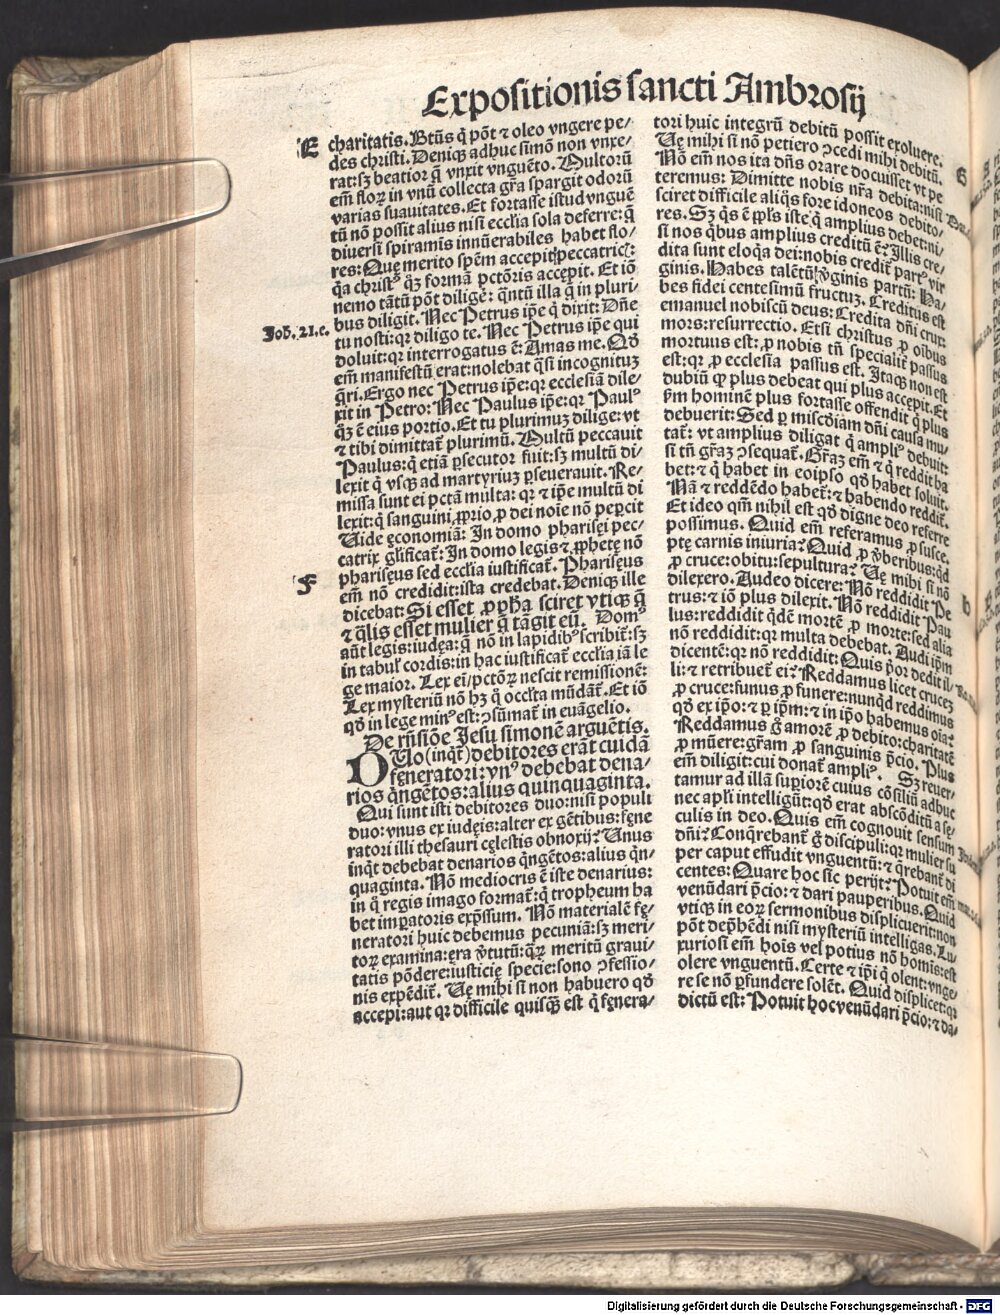 Expositionis sancti Ambrosij
E
charitatis. Btũs q̇ põt ⁊ oleo vngere pe/
des christi. Deniqꝫ adhuc simõ non vnxe/
rat: sꝫ beatior q̃ vnxit vnguẽto. Multorũ
em̃ floꝝ in vnũ collecta gr̃a spargit odorũ
varias suauitates. Et fortasse istud vnguẽ
tũ nõ possit alius nisi eccl̃ia sola deferre: q̃
diuersi spiramis innũerabiles habet flo/
res: Quę merito spẽm accepit peccatric̃:
q̃a christꝰ qꝫ formã pctõris accepit. Et iõ
nemo tãtũ põt diligẽ: q̃ntũ illa q̃ in pluri/
bus diligit. Nec Petrus ip̃e q̇ dixit: Dñe
Joh. 21. c.
tu nosti: qꝛ diligo te. Nec Petrus ip̃e qui
doluit: qꝛ interrogatus ẽ: Amas me. Qd̃
em̃ manifestũ erat: nolebat q̃si incognituꝫ
q̃ri. Ergo nec Petrus ip̃e: qꝛ ecclesiã dile/
xit in Petro: Nec Paulus ip̃e: qꝛ Paulꝰ
qꝫ ẽ eius portio. Et tu plurimuꝫ dilige: vt
⁊ tibi dimittat̃ plurimũ. Multũ peccauit
Paulus: q̇ etiã ꝑsecutor fuit: sꝫ multũ di/
lexit q̇ vsqꝫ ad martyriuꝫ ꝑseuerauit. Re/
missa sunt ei pctã multa: qꝛ ⁊ ip̃e multũ di
lexit: q̇ sanguini ꝓprio ꝓ dei noĩe nõ peꝑcit
Uide ęconomiã: In domo pharisęi pec/
catrix gl̃ificat̃: In domo legis ⁊ ꝓphetę nõ
F
pharisęus sed eccl̃ia iustificat̃. Pharisęus
em̃ nõ credidit: ista credebat. Deniqꝫ ille
dicebat: Si esset ꝓpha sciret vtiqꝫ q̃
⁊ q̃lis esset mulier q̃ tãgit eũ. Domꝰ
aũt legis: iudęa: q̃ nõ in lapidibꝰ scribit̃: sꝫ
in tabul̃ cordis: in hac iustificat̃ eccl̃ia iã le
ge maior. Lex em̃ pctõꝝ nescit remissionẽ:
Lex mysteriũ nõ hꝫ q̃ occl̃ta mũdãt̃. Et iõ
qd̃ in lege minꝰ est: ↄsũmat̃ in euãgelio.
De rñsiõe Jesu simonẽ arguẽtis.
DUo (inqt̃) debitores erãt cuidã
feneratori: vnꝰ debebat dena/
rios q̃ngẽtos: alius quinquaginta.
Qui sunt isti debitores duo: nisi populi
duo: vnus ex iudęis: alter ex gẽtibus: fęne
ratori illi thesauri cęlestis obnoxij? Unus
inqt̃ debebat denarios q̃ngẽtos: alius q̃n/
quaginta. Nõ mediocris ẽ iste denarius:
in q̇ regis imago format̃: q̇ tropheum ha
bet imꝑatoris exp̃ssum. Nõ materialẽ fę/
neratori huic debemus pecuniã: sꝫ meri/
toꝝ examina: ęra ṽtutũ: qꝝ meritũ graui/
tatis põdere: iusticię specie: sono ↄfessio/
nis expẽdit̃. Uę mihi si non habuero qd̃
accepi: aut qꝛ difficile quisqꝫ est q̇ fęnera/
tori huic integrũ debitũ possit exoluere.
Uę mihi si nõ petiero ↄcedi mihi debitũ.
G
Nõ em̃ nos ita dñs orare docuisset vt pe
teremus: Dimitte nobis nr̃a debita: nisi
sciret difficile aliqs fore idoneos debito/
res. Sꝫ q̇s ẽ ppl̃s iste q̇ amplius debet: ni/
si nos qbus amplius creditũ ẽ? Illis cre/
dita sunt eloq̃a dei: nobis credit̃ partꝰ vir
ginis. Habes talẽtũ ṽginis partũ: Ha/
bes fidei centesimũ fructuꝫ. Creditus est
emanuel nobiscũ deus: Credita dñi crux:
mors: resurrectio. Etsi christus ꝓ oĩbus
mortuus est: ꝓ nobis tñ specialit̃ passus
est: qꝛ ꝓ ecclesia passus est. Itaqꝫ non est
dubiũ qꝫ plus debeat qui plus accepit. Et
ẜm hominẽ plus fortasse offendit q̇ plus
debuerit: Sed ꝑ misc̃diam dñi causa mu/
tat̃: vt amplius diligat q̇ ampliꝰ debuit:
si tñ gr̃aꝫ ↄsequat̃. Gr̃aꝫ em̃ ⁊ q̇ reddit ha
bet: ⁊ q̇ habet in eoipso qd̃ habet soluit.
Nã ⁊ reddẽdo habet̃: ⁊ habendo reddit̃.
Et ideo qm̃ nihil est qd̃ digne deo referre
possimus. Quid em̃ referamus ꝓ susce/
ptę carnis iniuria? Quid ꝓ ṽberibus: qd
ꝓ cruce: obitu: sepultura? Uę mihi si nõ
dilexero. Audeo dicere: Nõ reddidit Pe
h
trus: ⁊ iõ plus dilexit. Nõ reddidit Pau
lus: reddidit q̇dẽ mortẽ ꝓ morte: sed alia
nõ reddidit: qꝛ multa debebat. Audi ip̃m
dicentẽ: qꝛ nõ reddidit: Quis p̃or dedit il/
li: ⁊ retribuet̃ ei? Reddamus licet cruceꝫ
ꝓ cruce: funus ꝓ funere: nunqd reddimus
qd̃ ex ip̃o: ⁊ ꝑ ip̃m: ⁊ in ip̃o habemus oĩa?
Reddamus g̃ amorẽ ꝓ debito: charitatẽ
ꝓ mũere: gr̃am ꝓ sanguinis p̃cio. Plus
em̃ diligit: cui donat̃ ampliꝰ. Sꝫ reuer/
tamur ad illã suꝑiorẽ cuius cõsiliũ adhuc
nec apl̃i intelligũt: qd̃ erat abscõditũ a sę/
culis in deo. Quis em̃ cognouit sensum
dñi? Conq̃rebant̃ g̃ discipuli: qꝛ mulier su
per caput effudit vnguentũ: ⁊ q̃rebant̃ di
centes: Quare hoc sic perijt? Potuit em̃
venũdari p̃cio: ⁊ dari pauperibus. Quid
vtiqꝫ in eoꝝ sermonibus displicuerit: non
põt dep̃hẽdi nisi mysteriũ intelligas. Lu/
xuriosi em̃ hoĩs vel potius nõ homĩs: est
olere vnguentũ. Certe ⁊ ip̃i q̇ olent: vnge/
re se nõ ꝑfundere solẽt. Quid displicet: qꝛ
dictũ est: Potuit hoc venũdari p̃cio: ⁊ da/
Digitalisierung gefördert durch die Deutsche Forschungsgemeinschaft - DFG